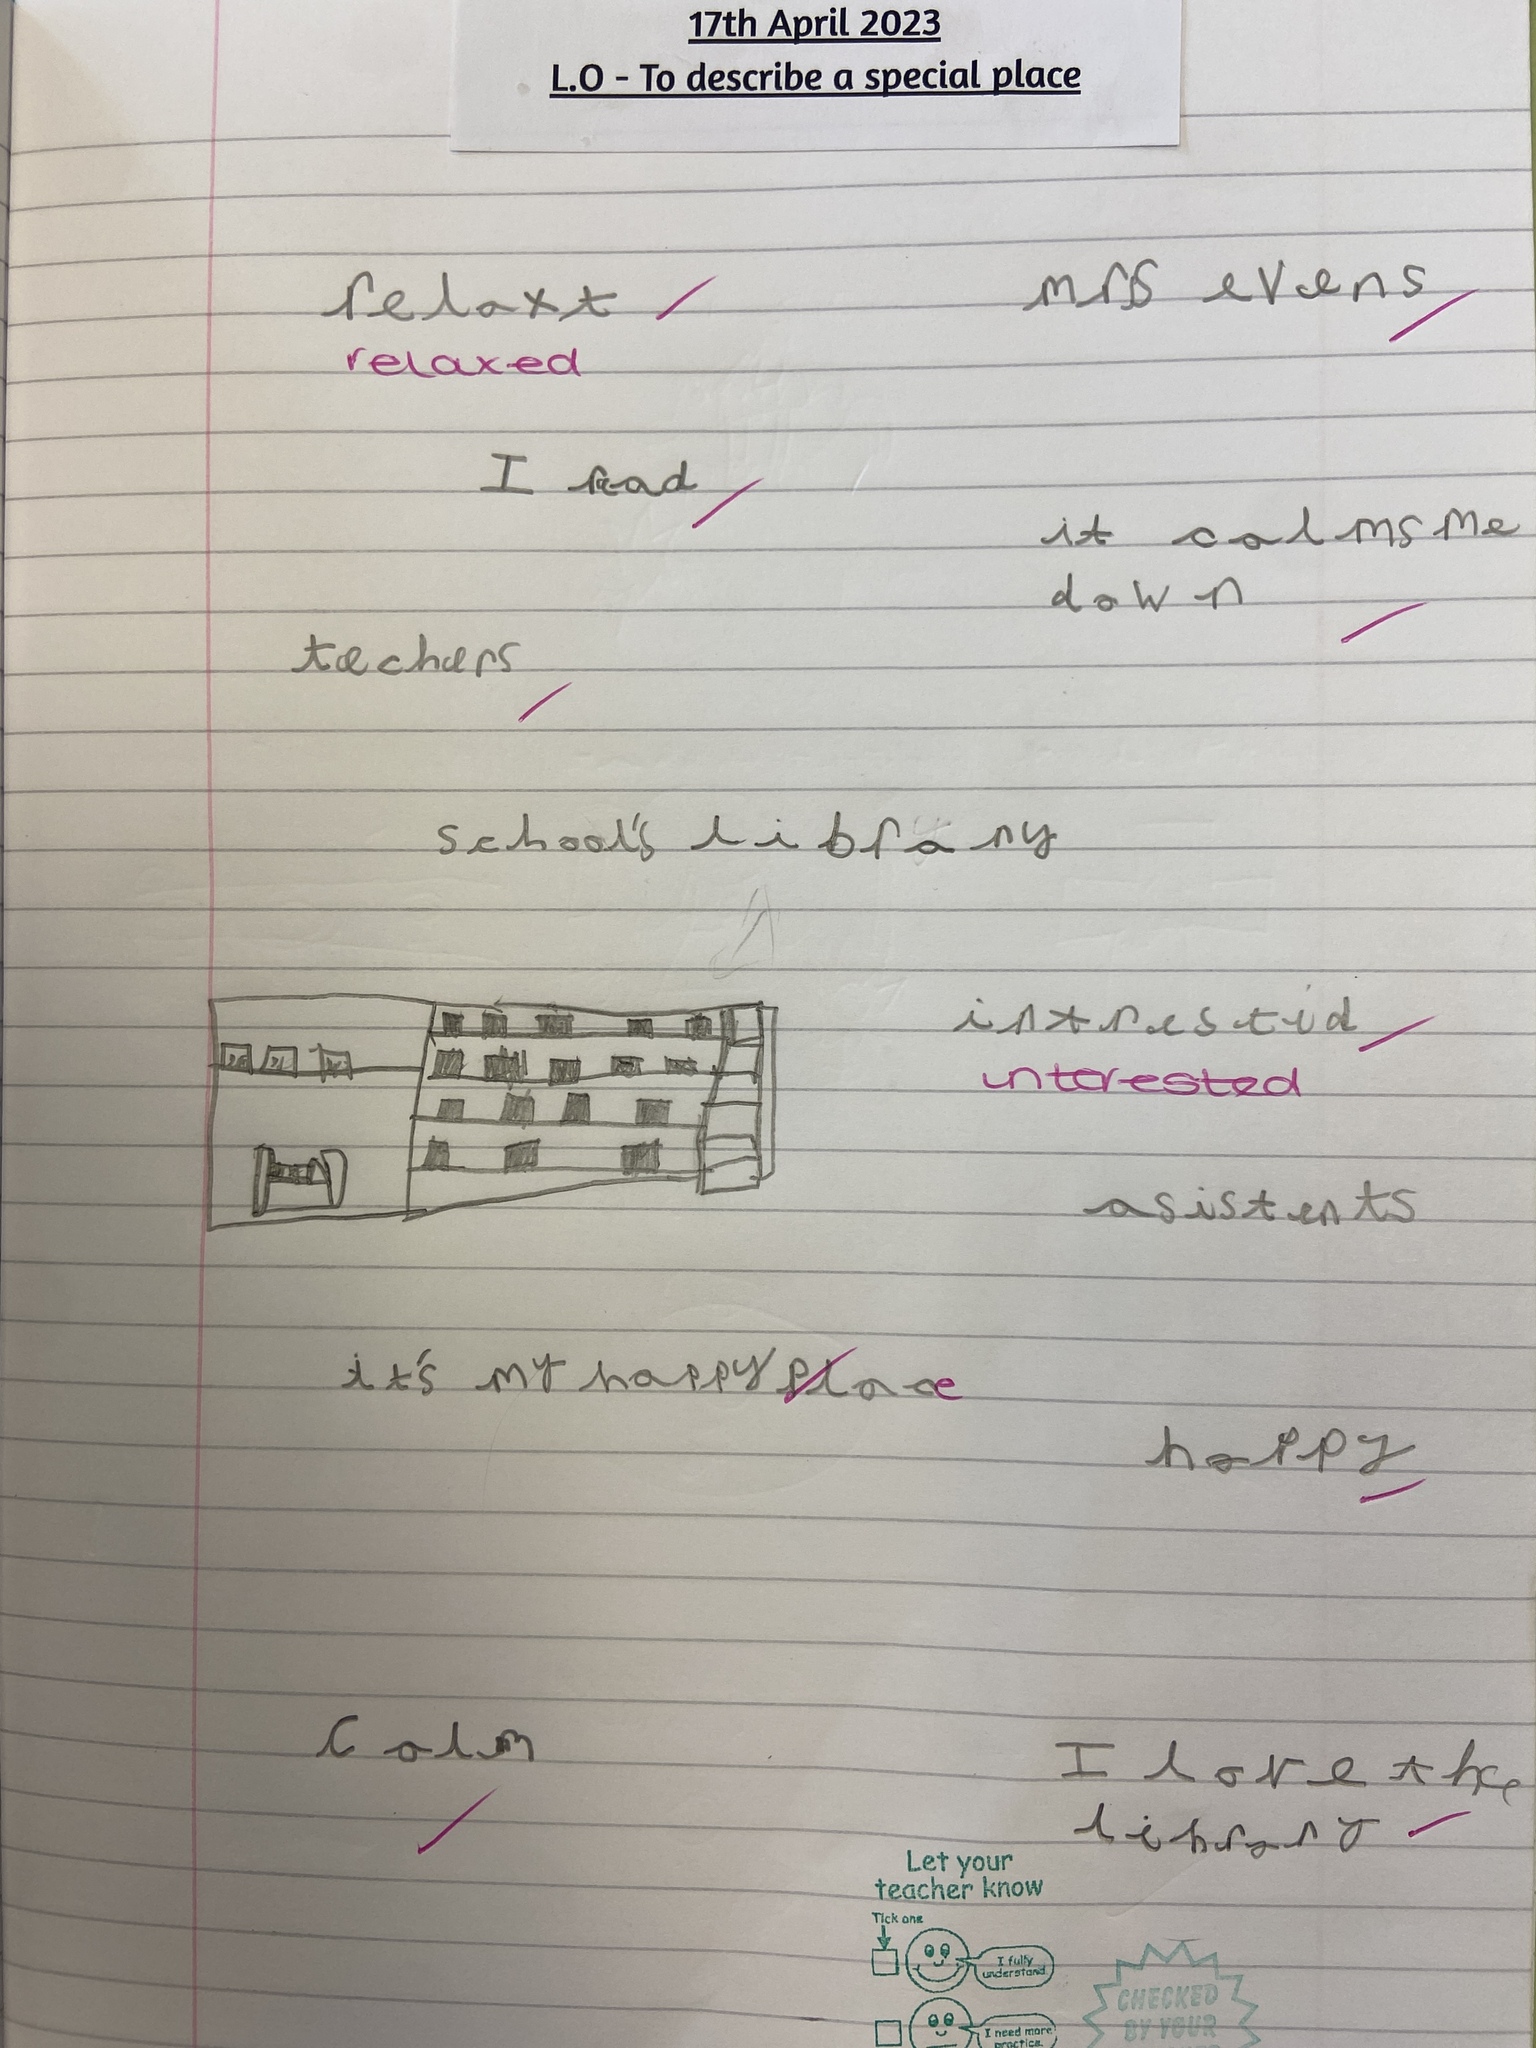 17th April 2023
L.O - To describe a special place
relaxt
mrs evens
relaxed
I read
it calms me
down
teachers
school's library
intrestid
interested
asistents
it's my happy place
happy
calm
I love the
library
Let your
teacher know
Tick one
I fully
understand
CHECKED
BY YOUR
I need more
practice.